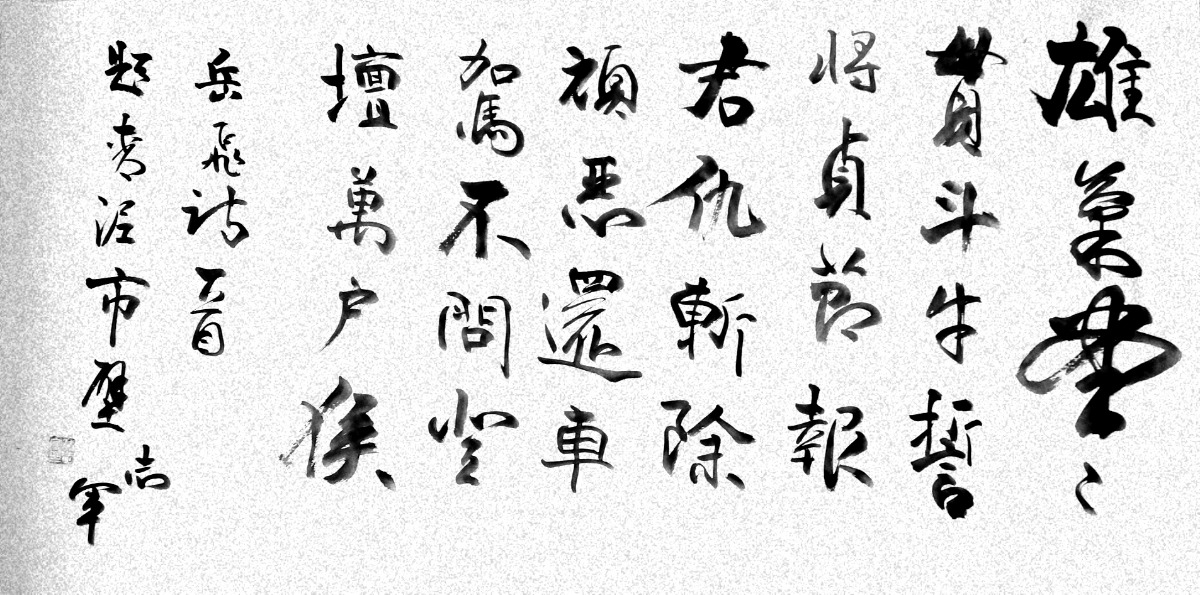 雄氣堂々
貫斗牛誓
將貞節報
君仇斬除
頑恶還車
駕不問登
壇萬户侯
岳飛詩一首
題青泥市壁
志军